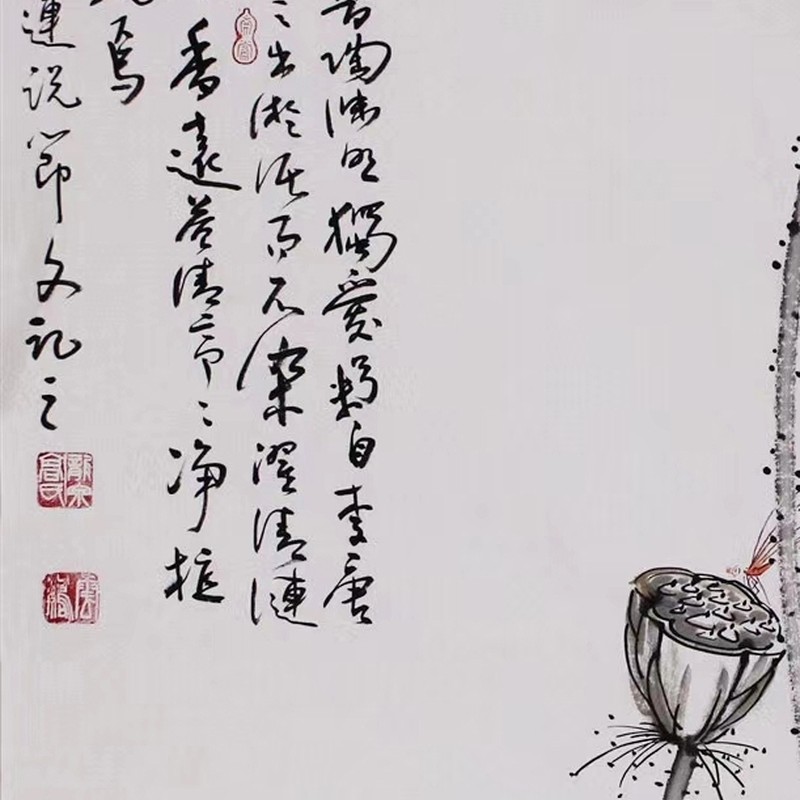 陶渊明獨愛菊自李唐
之出淤泥而不染濯清漣
香遠益清亭々净植
焉
蓮说節文记之